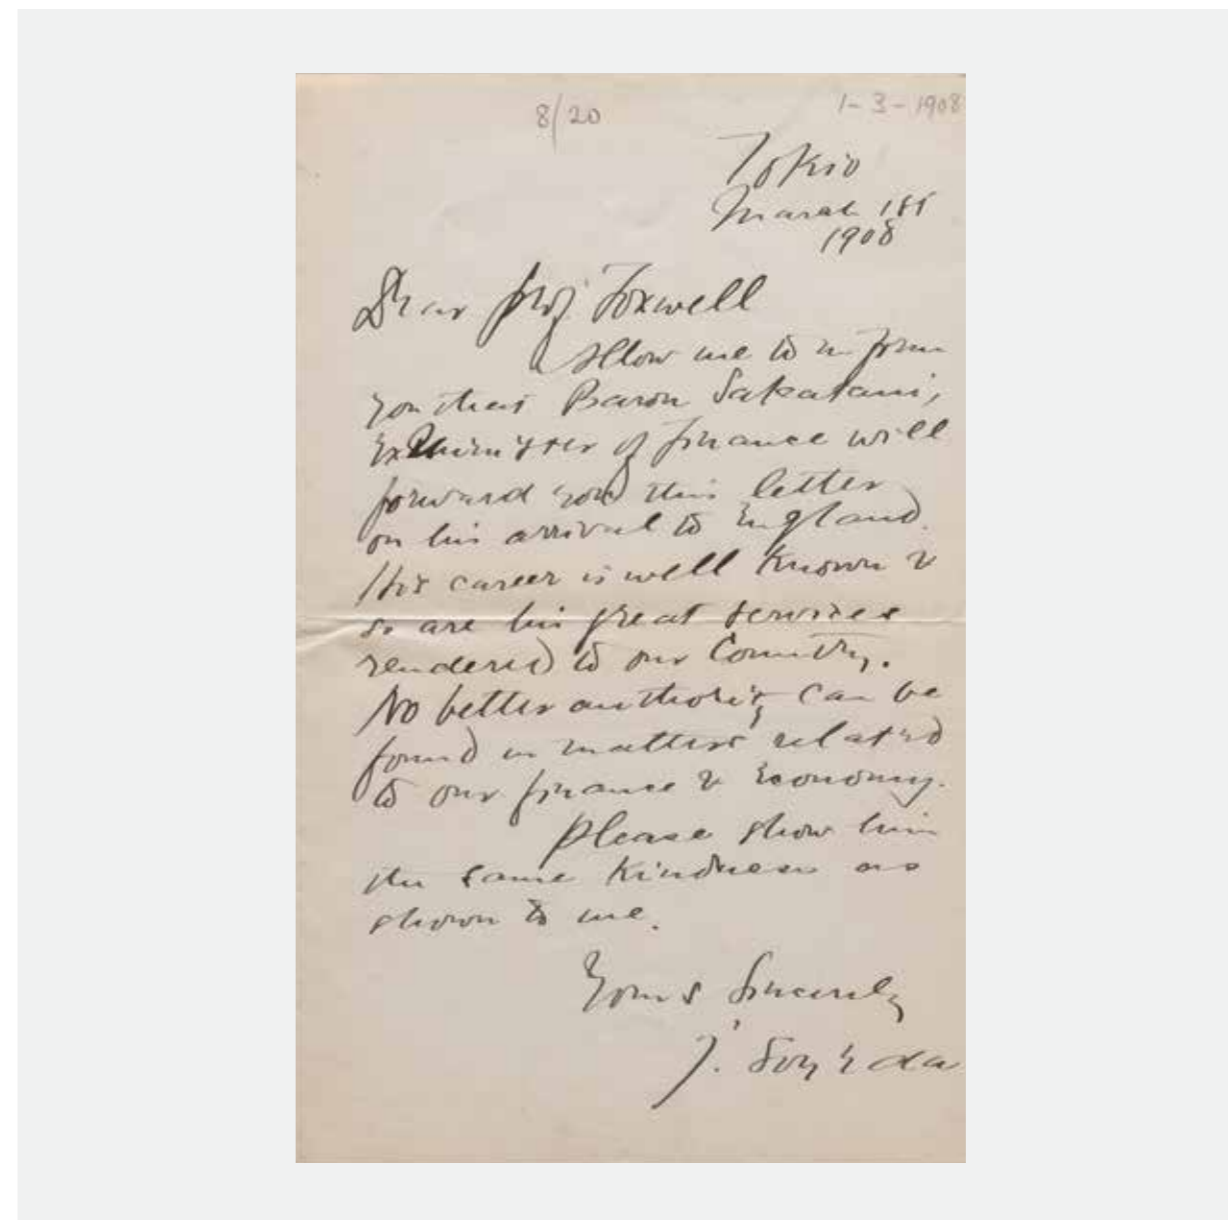 8/20
1-3-1908
Tokio
March 1st
1908
Dear Prof Foxwell
Allow me to inform
you that Baron Sakatani,
Ex Minister of finance will
forward you this letter
on his arrival to England.
His career is well known &
so are his great services
rendered to our Country.
No better authority can be
found in matters related
to our finance & Economy.
Please show him
the same kindness as
shown to me.
Yours Sincerely
J. Soyeda